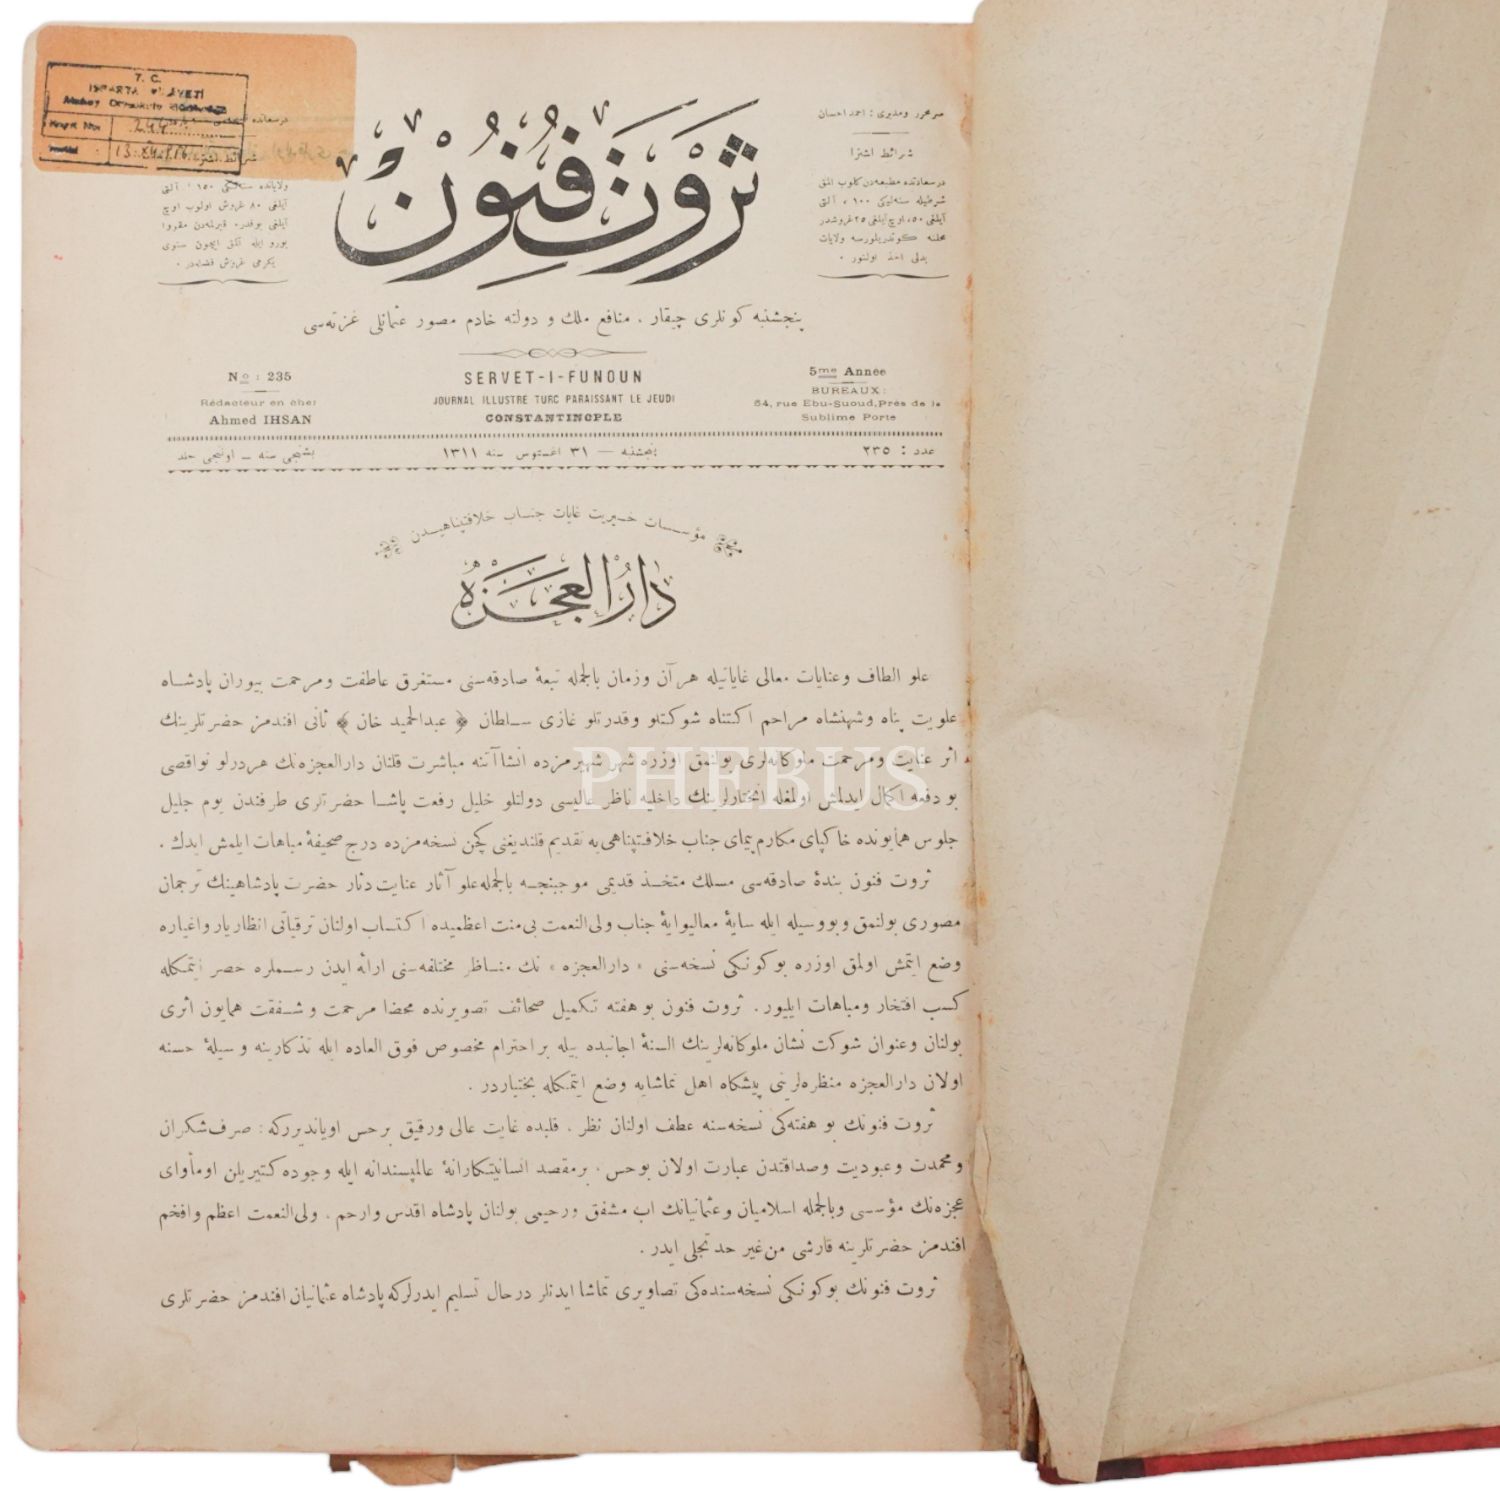 T. C.
ISPARTA VİLÂYETİ
244
ثروت فنون
سر محرر ومدیری : احمد احسان
شرائط اشترا
درسعادتده مطبعه‌دن کلوب آلمق
شرطیله سنه‌لیکی ١٠٠ ، آلتی
آیلغی ٥٠، اوچ آیلغی ٢٥ غروشدر
محلنه کوندریلورسه ولایات
بدلی اخذ اولنور .
ولایاتده سنه‌لکی ١٥٠ ، آلتی
آیلغی ٨٠ غروش اولوب اوچ
آیلغی یوقدر. قیرلمه‌دن مقووا
بورو ایله آلمق ایچون سنوی
یکرمی غروش فضله‌در .
پنجشنبه کونلری چیقار ، منافع ملك و دولته خادم مصور عثمانلی غزته‌سی
No : 235
Rédacteur en chef
Ahmed IHSAN
SERVET-I-FUNOUN
JOURNAL ILLUSTRÉ TURC PARAISSANT LE JEUDI
CONSTANTINOPLE
5me Année
BUREAUX:
54, rue Ebu-Suoud, Près de la
Sublime Porte
عدد : ٢٣٥
پنجشنبه — ٣١ اغستوس سنه ١٣١١
بشنجی سنه — اوننجی جلد
مؤسسات خیریت غایات جناب خلافتپناهیدن
دارالعجزه
علو الطاف وعنایات معالی غایاتیله هر آن وزمان بالجمله تبعهٔ صادقه‌سنی مستغرق عاطفت ومرحمت بیوران پادشاه
علویت پناه وشهنشاه مراحم اکتناه شوکتلو وقدرتلو غازی سلطان ﴿ عبدالحمید خان ﴾ ثانی افندمز حضرتلرینك
اثر عنایت ومرحمت ملوکانه‌لری بولنمق اوزره شهر شهیرمزده انشاآتنه مباشرت قلنان دارالعجزه‌نك هردرلو نواقصی
بو دفعه اکمال ایدلمش اولمغله داخلیه ناظر عالیسی دولتلو خلیل رفعت پاشا حضرتلری طرفندن یوم جلیل
جلوس همایونده خاکپای مکارم پیمای جناب خلافتپناهی‌یه تقدیم قلندیغنی کچن نسخه‌مزده درج صحیفهٔ مباهات ایلمش ایدك .
ثروت فنون بندهٔ صادقه‌سی مسلك متخذ قدیمی موجبنجه بالجمله علو آثار عنایت دثار حضرت پادشاهینك ترجمان
مصوری بولنمق وبووسیله ایله سایهٔ معالیوایهٔ جناب ولی‌النعمت بی‌منت اعظمیده اکتساب اولنان ترقیاتی انظار یار واغیاره
وضع ایتمش اولمق اوزره بوکونکی نسخه‌سنی « دارالعجزه » نك مناظر مختلفه‌سنی ارائه ایدن رسملره حصر ایتمکله
کسب افتخار ومباهات ایلیور . ثروت فنون بو هفته تکمیل صحائف تصویرنده محضا مرحمت وشفقت همایون اثری
بولنان وعنوان شوکت نشان ملوکانه‌لرینك السنهٔ اجانبده بیله بر احترام مخصوص فوق العاده ایله تذکارینه وسیلهٔ حسنه
اولان دارالعجزه منظره‌لرینی پیشکاه اهل تماشایه وضع ایتمکله بختیاردر .
ثروت فنونك بو هفته‌کی نسخه‌سنه عطف اولنان نظر ، قلبده غایت عالی ورقیق بر حس اویاندیررکه : صرف شکران
ومحمدت وعبودیت وصداقتدن عبارت اولان بوحس ، بر مقصد انسانیتکارانهٔ عالمپسندانه ایله وجوده کتیریلن او مأوای
عجزه‌نك مؤسسی وبالجمله اسلامیان وعثمانیانك اب مشفق ورحیمی بولنان پادشاه اقدس وارحم ، ولی‌النعمت اعظم وافخم
افندمز حضرتلرینه قارشی من غیر حد تجلی ایدر .
ثروت فنونك بوکونکی نسخه‌سنده‌کی تصاویری تماشا ایدنلر درحال تسلیم ایدرلرکه پادشاه عثمانیان افندمز حضرتلری
PHEBUS